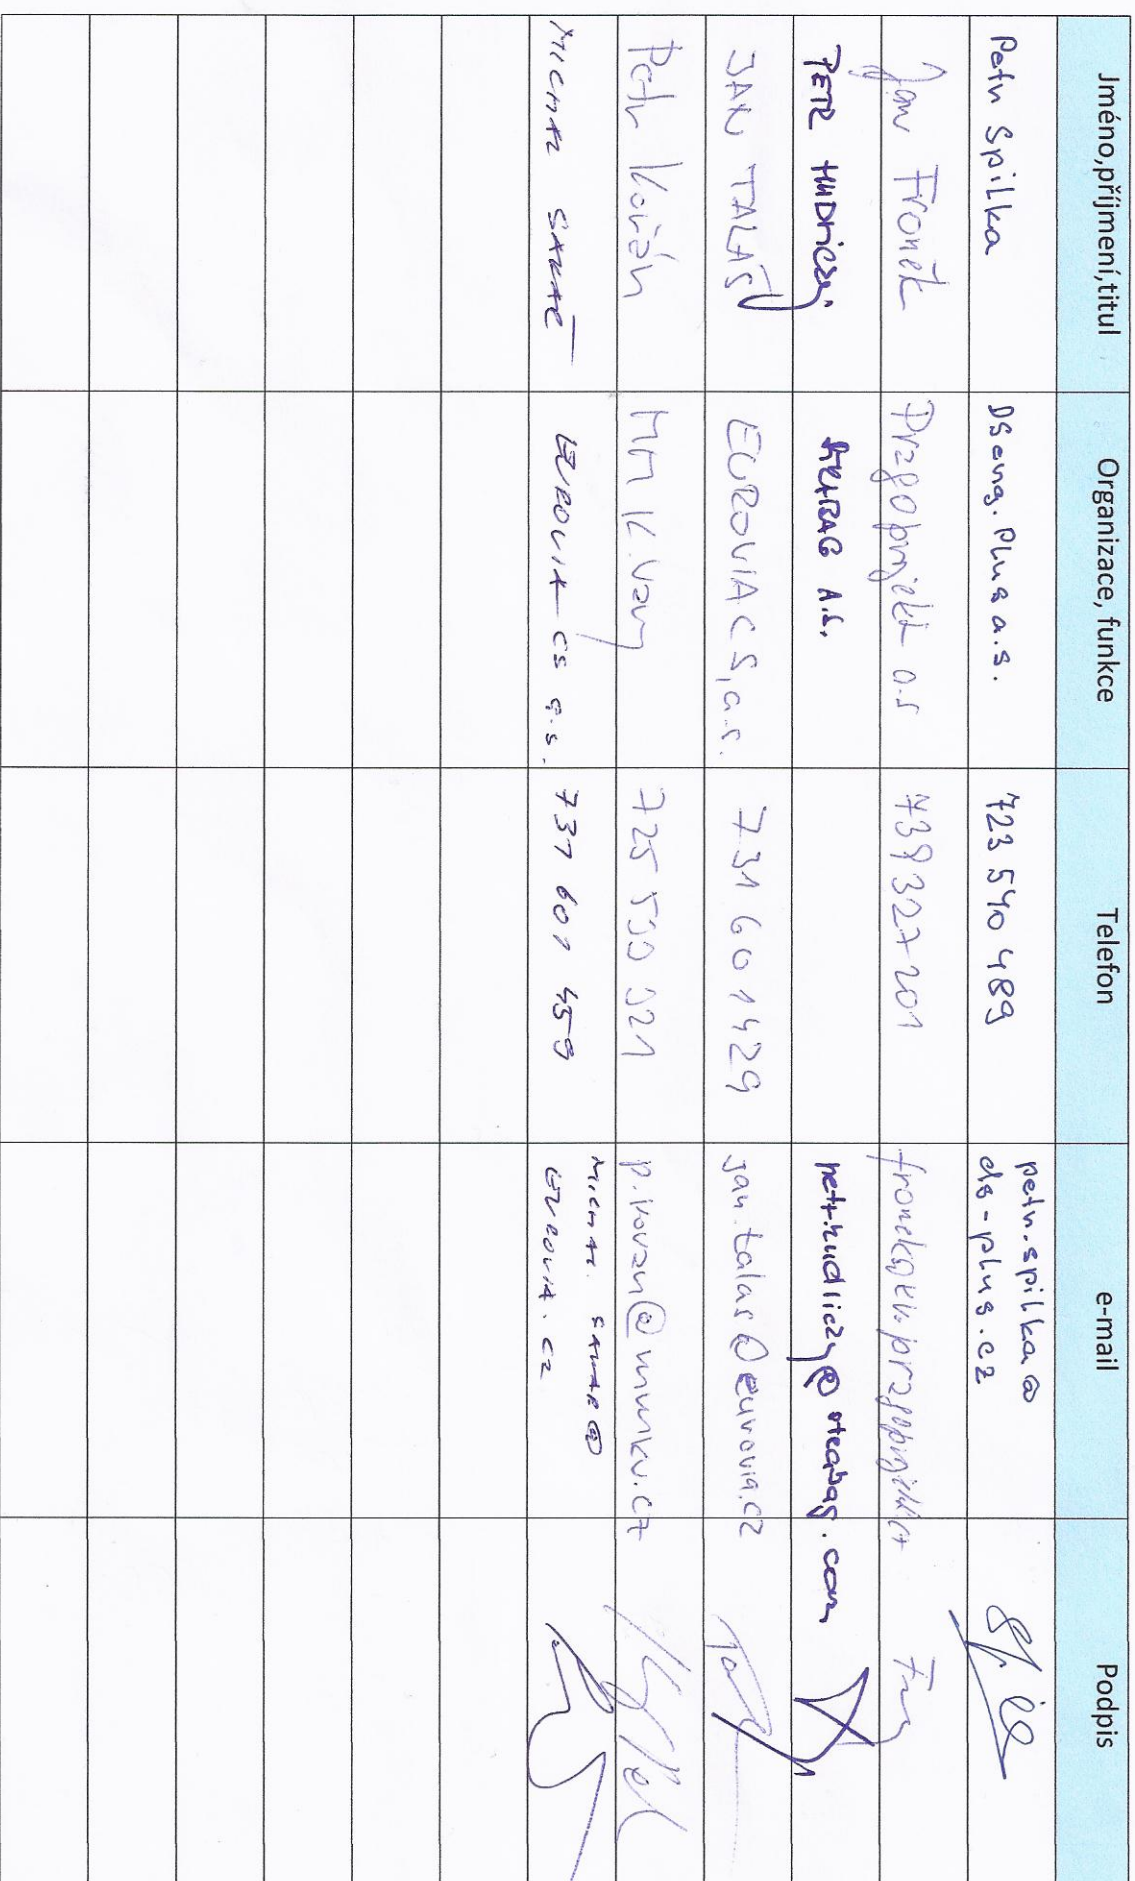 Jméno,příjmení,titul Organizace, funkce Telefon e-mail Podpis
Petr Spilka DSeng. Plus a.s. 723 540 489 petr.spilka@
ds-plus.cz
Jan Froněk Pragoprojekt a.s 739327201
PETR HUDLICZY STRABAG A.S. petr.hudliczy@strabag.com
JAN TALAŠ EUROVIA CS, a.s. 731 601 429 jan.talas@eurovia.cz
Petr Kován MM K.Vary 725 500 321 p.kovan@mmkv.cz
MICHAL EUROVIA CS a.s. 731 601 459 MICHAL.
EUROVIA.CZ